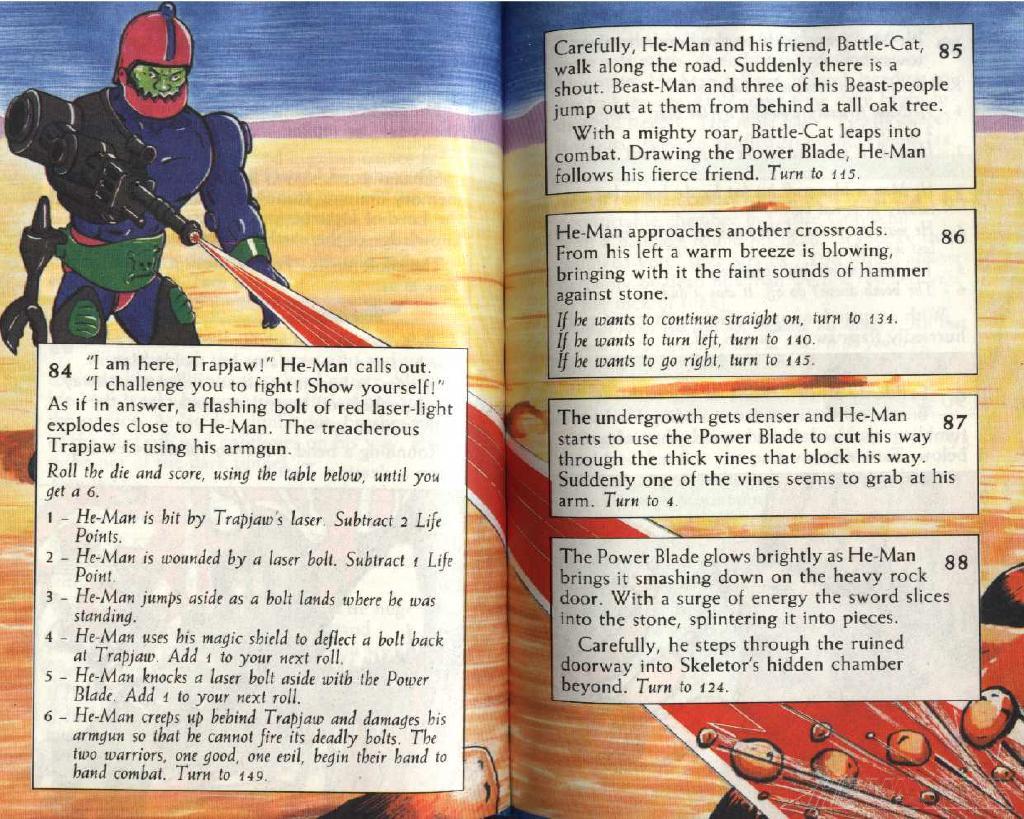 84 "I am here, Trapjaw!" He-Man calls out.
"I challenge you to fight! Show yourself!"
As if in answer, a flashing bolt of red laser-light
explodes close to He-Man. The treacherous
Trapjaw is using his armgun.
Roll the die and score, using the table below, until you
get a 6.
1 – He-Man is hit by Trapjaw's laser. Subtract 2 Life
Points.
2 – He-Man is wounded by a laser bolt. Subtract 1 Life
Point.
3 – He-Man jumps aside as a bolt lands where he was
standing.
4 – He-Man uses his magic shield to deflect a bolt back
at Trapjaw. Add 1 to your next roll.
5 – He-Man knocks a laser bolt aside with the Power
Blade. Add 1 to your next roll.
6 – He-Man creeps up behind Trapjaw and damages his
armgun so that he cannot fire its deadly bolts. The
two warriors, one good, one evil, begin their hand to
hand combat. Turn to 149.
Carefully, He-Man and his friend, Battle-Cat, 85
walk along the road. Suddenly there is a
shout. Beast-Man and three of his Beast-people
jump out at them from behind a tall oak tree.
With a mighty roar, Battle-Cat leaps into
combat. Drawing the Power Blade, He-Man
follows his fierce friend. Turn to 115.
He-Man approaches another crossroads. 86
From his left a warm breeze is blowing,
bringing with it the faint sounds of hammer
against stone.
If he wants to continue straight on, turn to 134.
If he wants to turn left, turn to 140.
If he wants to go right, turn to 145.
The undergrowth gets denser and He-Man 87
starts to use the Power Blade to cut his way
through the thick vines that block his way.
Suddenly one of the vines seems to grab at his
arm. Turn to 4.
The Power Blade glows brightly as He-Man 88
brings it smashing down on the heavy rock
door. With a surge of energy the sword slices
into the stone, splintering it into pieces.
Carefully, he steps through the ruined
doorway into Skeletor's hidden chamber
beyond. Turn to 124.